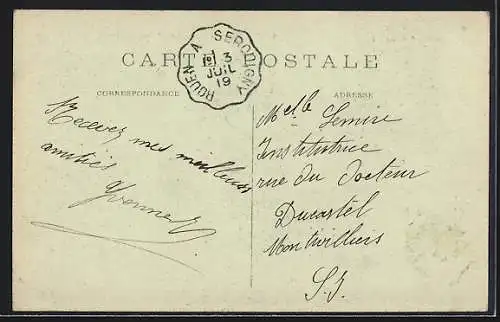 ROUEN A SERQUIGNY
3
JUIL
19
CARTE POSTALE
CORRESPONDANCE
ADRESSE
Recevez mes meilleures
amitiés
Yvonne
Melle Lemire
Institutrice
rue du docteur
Ducastel
Montivilliers
S.I.